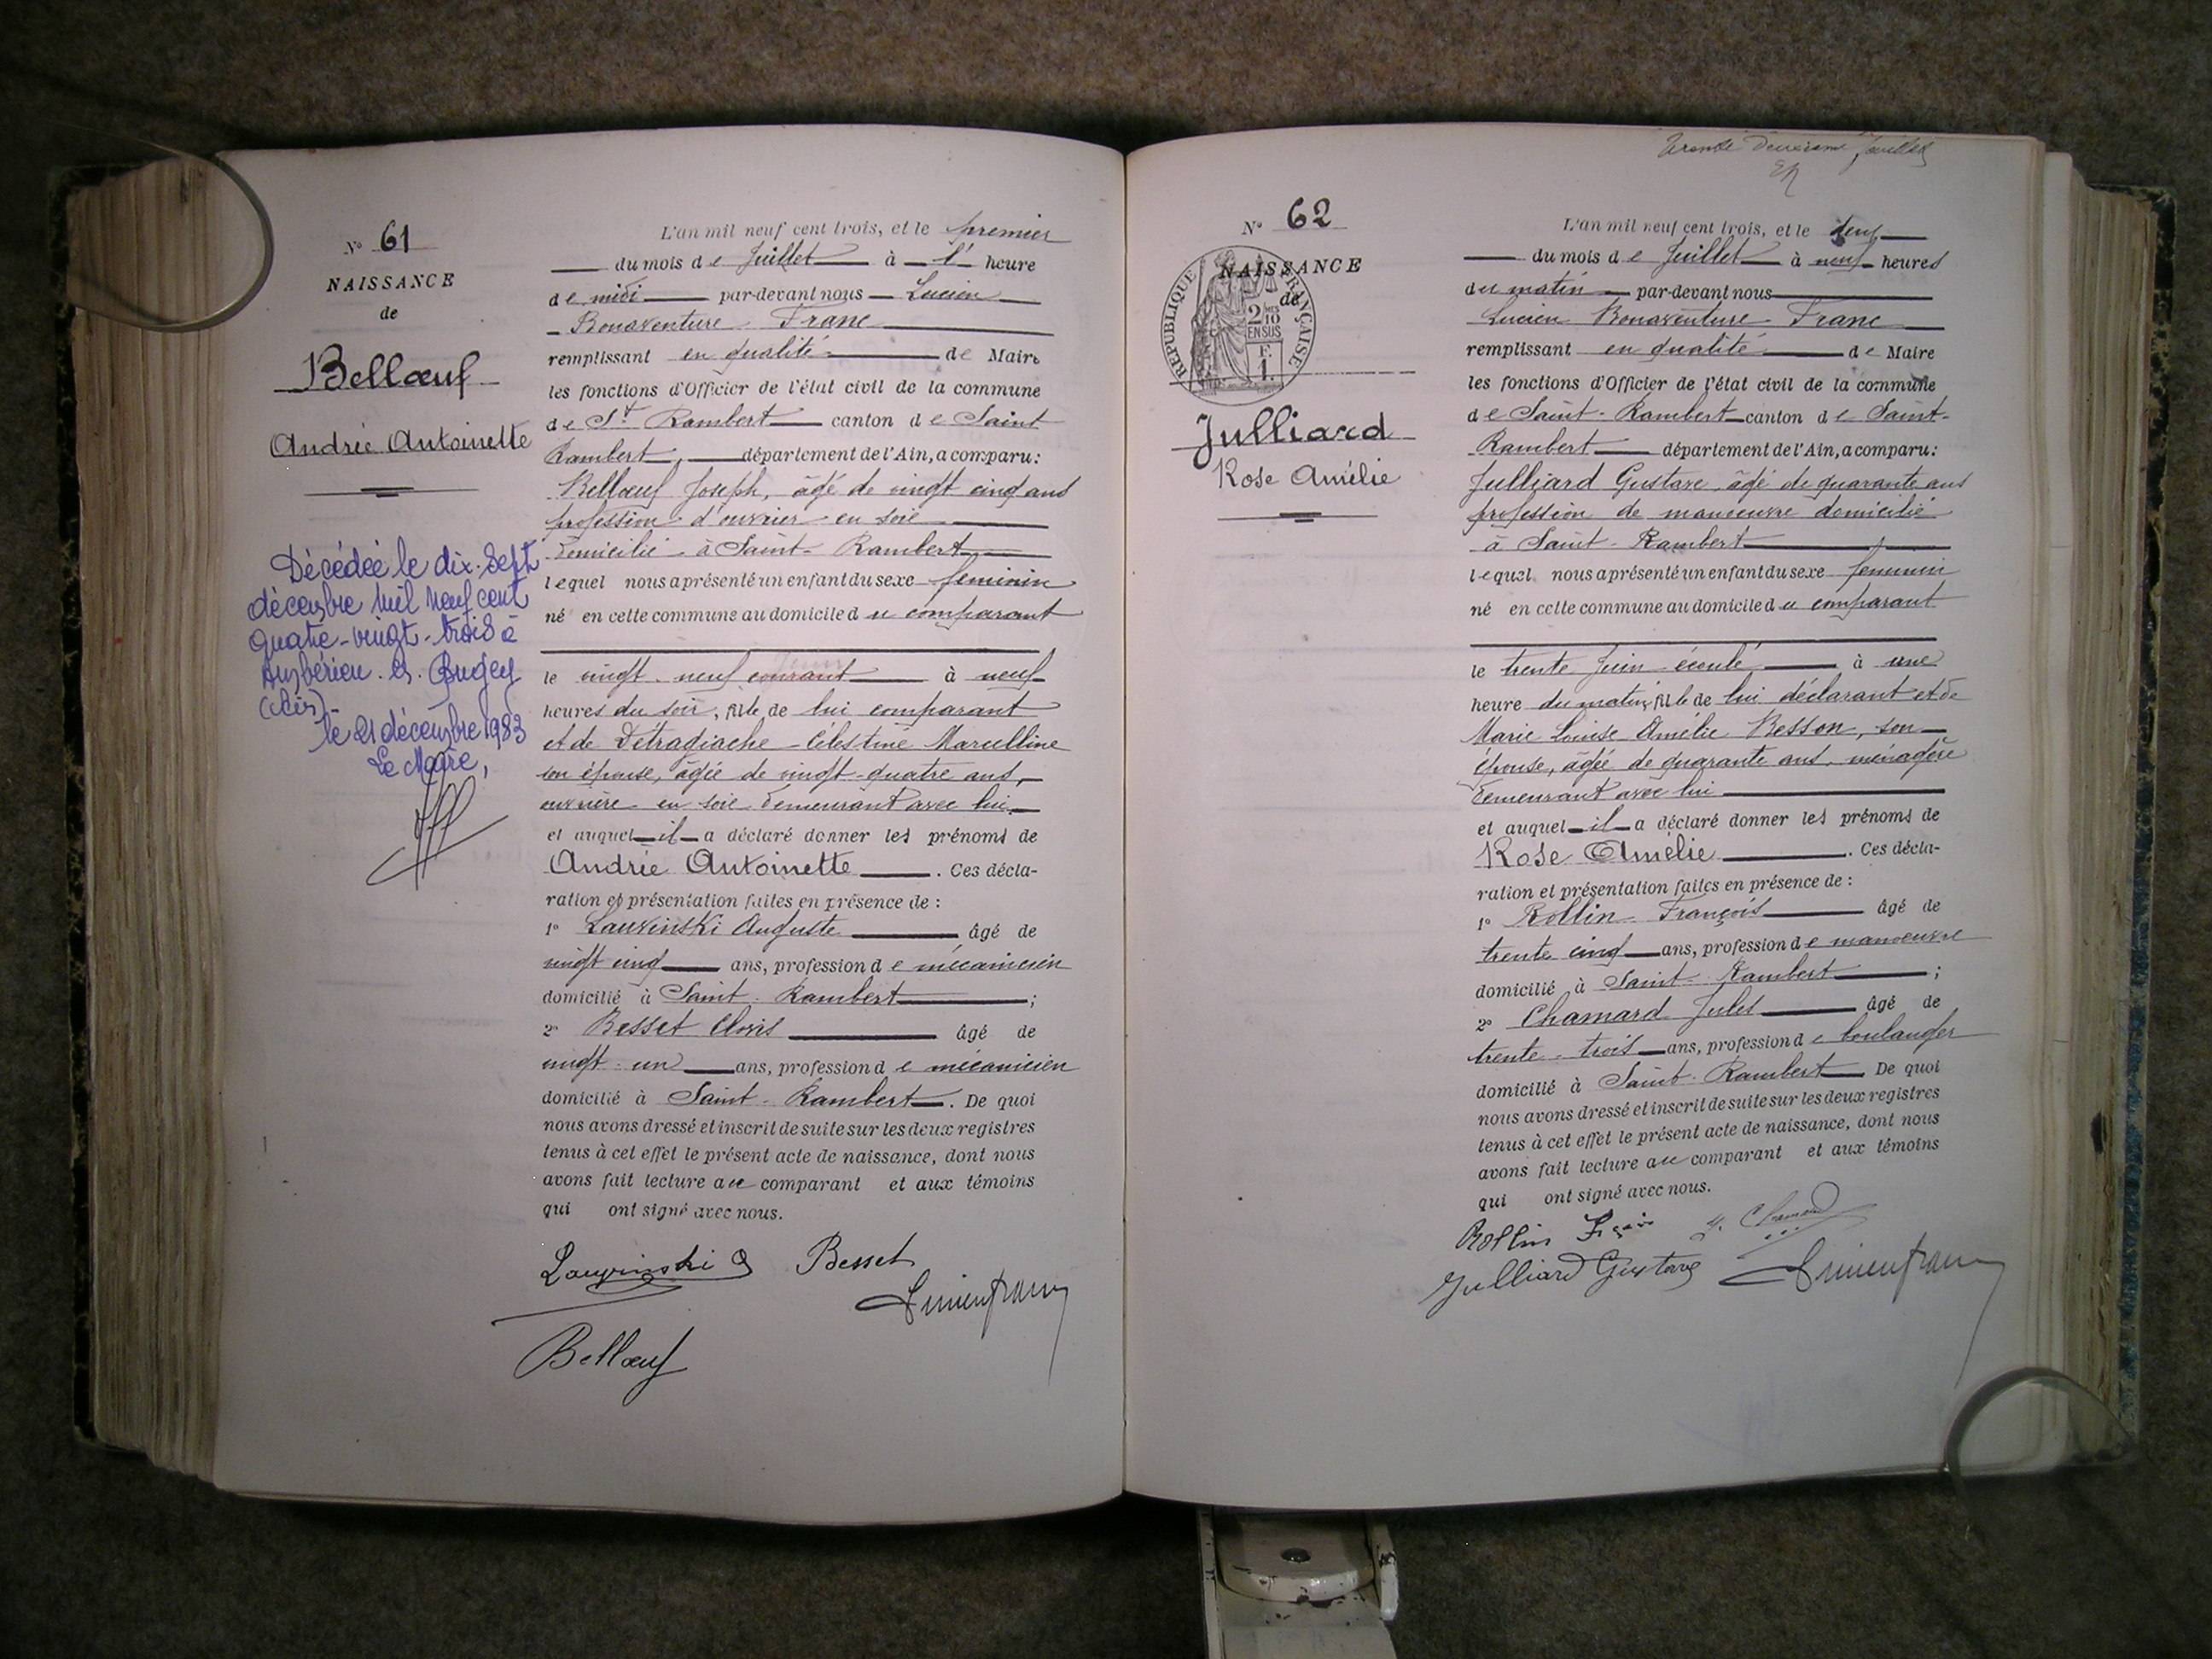 N° 61
NAISSANCE
de
Bellœuf
Andrée Antoinette
Décédée le dix-sept
décembre mil neuf cent
quatre-vingt-trois à
Ambérieu-en-Bugey
(Ain)
le 21 décembre 1983
Le Maire,
L'an mil neuf cent trois, et le premier
du mois de Juillet à l' heure
de midi par-devant nous Lucien
Bonaventure Franc
remplissant en qualité de Maire
les fonctions d'Officier de l'état civil de la commune
de St Rambert canton de Saint
Rambert, département de l'Ain, a comparu:
Bellœuf Joseph, âgé de vingt cinq ans
profession d'ouvrier en soie
domicilié à Saint-Rambert
lequel nous a présenté un enfant du sexe féminin
né en cette commune au domicile du comparant
le vingt-neuf courant à neuf
heures du soir, fille de lui comparant
et de Détragiache Célestine Marcelline
son épouse, âgée de vingt-quatre ans,
ouvrière en soie demeurant avec lui
et auquel il a déclaré donner les prénoms de
Andrée Antoinette. Ces décla-
ration et présentation faites en présence de :
1° Lauvinski Auguste âgé de
vingt cinq ans, profession de mécanicien
domicilié à Saint-Rambert ;
2° Besset Clovis âgé de
vingt-un ans, profession de mécanicien
domicilié à Saint-Rambert. De quoi
nous avons dressé et inscrit de suite sur les deux registres
tenus à cet effet le présent acte de naissance, dont nous
avons fait lecture au comparant et aux témoins
qui ont signé avec nous.
Besset
Bellœuf
Trente deuxième feuillet
N° 62
NAISSANCE
de
RÉPUBLIQUE FRANÇAISE
2/10
EN SUS
F.
1.
Julliard
Rose Amélie
L'an mil neuf cent trois, et le deux
du mois de Juillet à neuf heures
du matin par-devant nous
Lucien Bonaventure Franc
remplissant en qualité de Maire
les fonctions d'Officier de l'état civil de la commune
de Saint-Rambert canton de Saint-
Rambert département de l'Ain, a comparu:
Julliard Gustave, âgé de quarante ans
profession de manœuvre domicilié
à Saint-Rambert
lequel nous a présenté un enfant du sexe féminin
né en cette commune au domicile du comparant
le trente Juin écoulé à une
heure du matin, fille de lui déclarant et de
Marie Louise Amélie Besson, son
épouse, âgée de quarante ans, ménagère
demeurant avec lui
et auquel il a déclaré donner les prénoms de
Rose Amélie. Ces décla-
ration et présentation faites en présence de :
1° Rollin François âgé de
trente cinq ans, profession de manœuvre
domicilié à Saint-Rambert ;
2° Chamard Jules âgé de
trente-trois ans, profession de boulanger
domicilié à Saint-Rambert De quoi
nous avons dressé et inscrit de suite sur les deux registres
tenus à cet effet le présent acte de naissance, dont nous
avons fait lecture au comparant et aux témoins
qui ont signé avec nous.
Rollin
Julliard Gustave